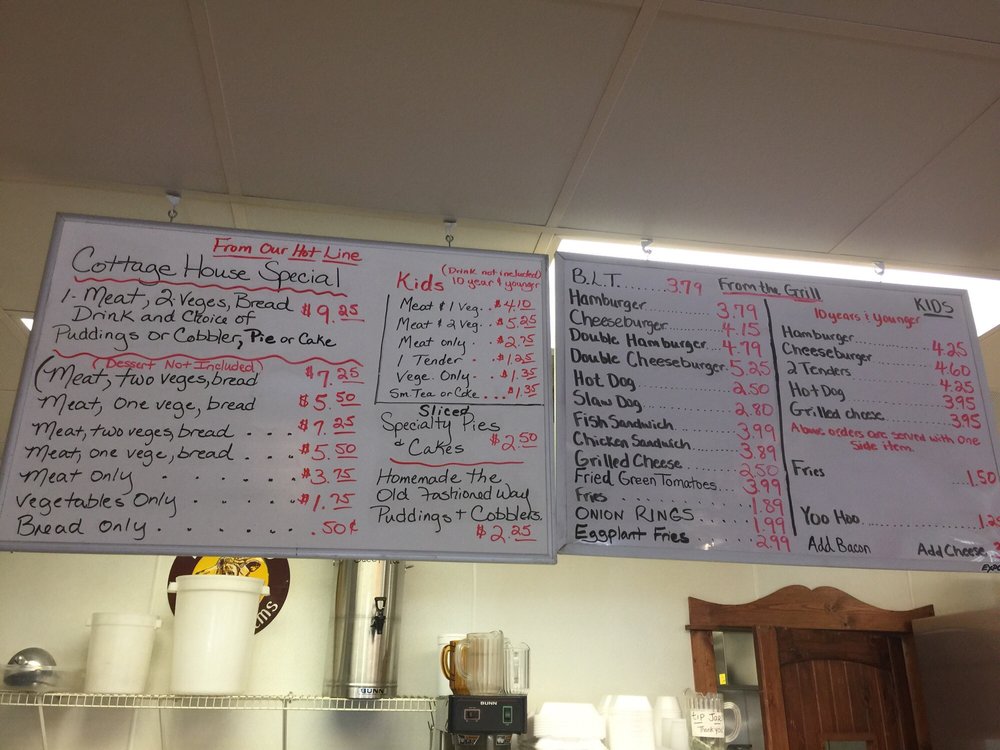 From Our Hot Line
Cottage House Special
1- Meat, 2-Veges, Bread $9.25
Drink and Choice of
Puddings or Cobbler, Pie or Cake
(Dessert Not Included)
(Meat, two veges, bread $7.25
Meat, One vege, bread $5.50
Meat, two veges, bread . . . . $7.25
Meat, one vege, bread . . . . $5.50
Meat Only . . . . . . $3.75
Vegetables Only . . . . . $1.75
Bread Only . . . . . . .50¢
Kids (Drink not included)
10 year & younger
Meat & 1 Veg. . $4.10
Meat & 2 Veg. . . $5.25
Meat only . . . $2.75
1 Tender . . . $1.25
Vege. Only . . . $1.35
Sm. Tea or Coke . . . $1.35
Sliced
Specialty Pies
& Cakes $2.50
Homemade the
Old Fashioned Way
Puddings + Cobblers
$2.25
B.L.T. 3.79
From the Grill
Hamburger 3.79
Cheeseburger 4.15
Double Hamburger 4.79
Double Cheeseburger 5.25
Hot Dog 2.50
Slaw Dog 2.80
Fish Sandwich 3.99
Chicken Sandwich 3.89
Grilled Cheese 2.50
Fried Green Tomatoes 3.99
Fries 1.89
ONION RINGS 1.99
Eggplant Fries 2.99
KIDS
10 years & younger
Hamburger 4.25
Cheeseburger 4.60
2 Tenders 4.25
Hot Dog 3.95
Grilled cheese 3.95
Above orders are served with one
side item.
Fries 1.50
Yoo Hoo
Add Bacon Add Cheese
EXPO
BUNN
BUNN
tip Jar
Thank you